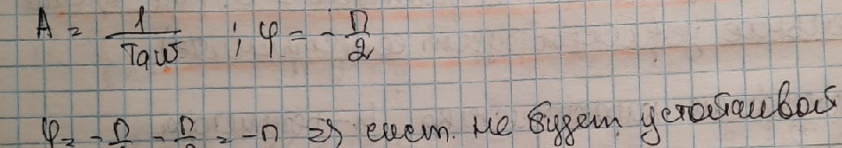 A = 1/Taω ; φ = -π/2
φ = -π/2 - π/2 = -π => сист. не будет устойчивой